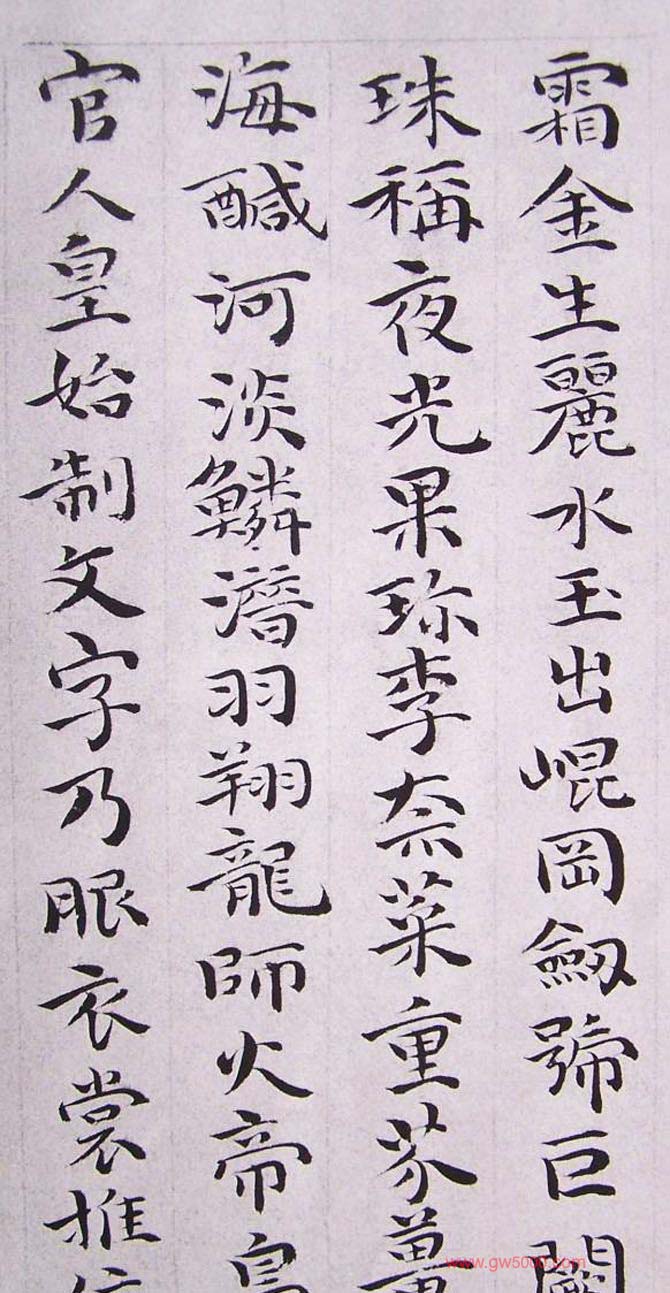 霜金生麗水玉出崐岡劒號巨闕
珠稱夜光果珎李奈菜重芥薑
海醎河淡鱗潛羽翔龍師火帝鳥
官人皇始制文字乃服衣裳推位